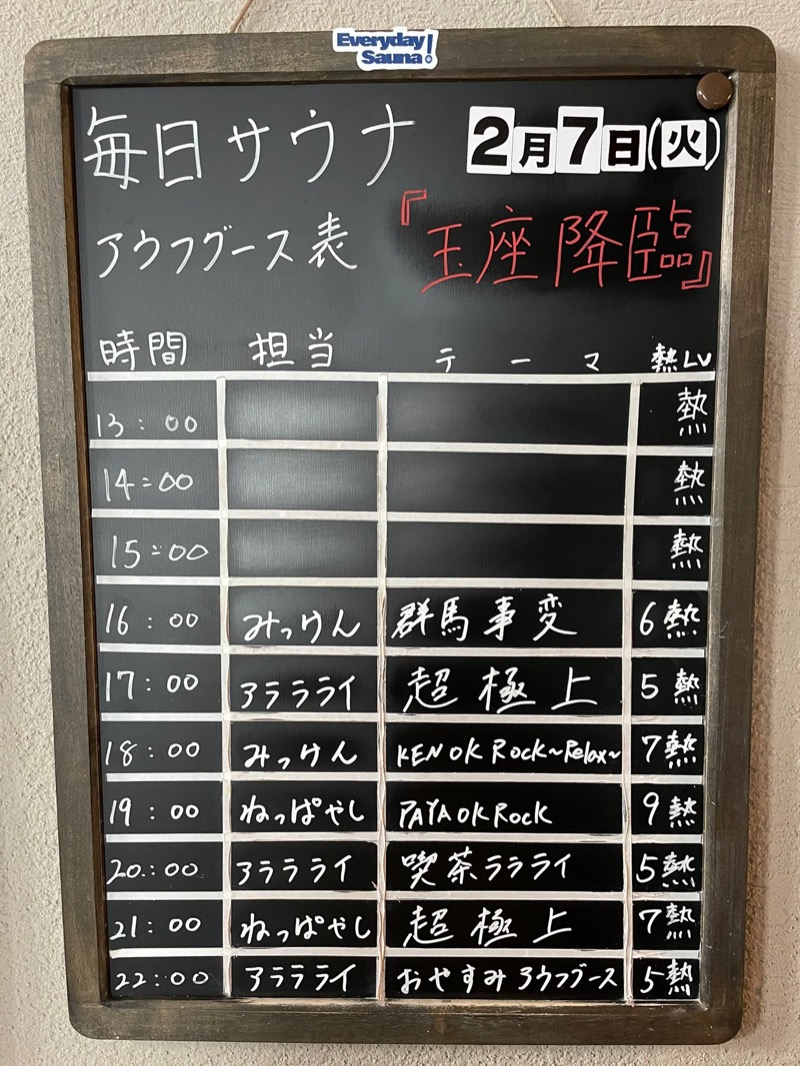 Everyday
Sauna!
毎日サウナ 2月7日(火)
アウフグース表 『玉座降臨』
時間 担当 テーマ 熱LV
13:00 熱
14:00 熱
15:00 熱
16:00 みっけん 群馬事変 6熱
17:00 アラララライ 超極上 5熱
18:00 みっけん KEN OK Rock~Relax~ 7熱
19:00 ねっぱやし PAYA OK Rock 9熱
20:00 アララライ 喫茶ララライ 5熱
21:00 ねっぱやし 超極上 7熱
22:00 アララライ おやすみアウフグース 5熱